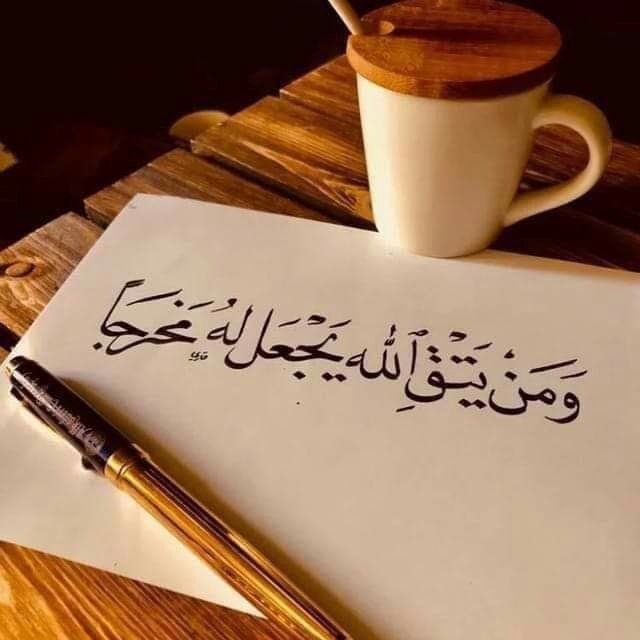 وَمَنْ يَتَّقِ ٱللَّه يَجْعَل لَهُ مَخْرَجاً